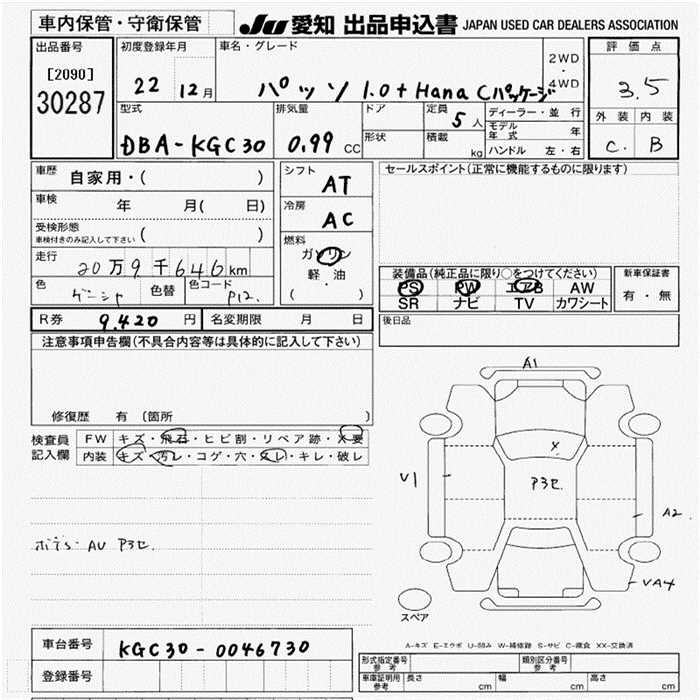 車内保管・守衛保管
JU 愛知 出品申込書 JAPAN USED CAR DEALERS ASSOCIATION
出品番号
[2090]
30287
初度登録年月
22 12月
車名・グレード
パッソ 1.0+Hana Cパッケージ
2WD
・
4WD
評価点
3.5
外装 内装
C. B
型式
DBA-KGC30
排気量
0.99 CC
ドア
形状
定員 5人
積載 kg
ディーラー・並行
モデル年式 年
ハンドル 左・右
車歴 自家用・( )
車検 年 月( 日)
受検形態
車検付きのみ記入して下さい ( )
走行 20万9千646km
色 色替 色コード P12.
シフト
AT
冷房
AC
燃料
ガソリン
軽・油
( )
セールスポイント(正常に機能するものに限ります)
装備品(純正品に限り○をつけてください)
PS PW エアB AW
SR ナビ TV カワシート
新車保証書
有・無
R券 9,420 円 名変期限 月 日
後日品
注意事項申告欄(不具合内容等は具体的に記入して下さい)
修復歴 有 (箇所 )
検査員
記入欄
FW キズ・飛石・ヒビ割・リペア跡・X要
内装 キズ・汚レ・コゲ・穴・スレ・キレ・破レ
A1
X
P3セ.
V1
A2
VA4
スペア
ボデS AU P3セ.
A-キズ E-エクボ U-凹み W-補修跡 S-サビ C-腐食 XX-交換済
車台番号 KGC30-0046730
登録番号
形式指定番号
参考
類別区分番号
参考
車庫証明用
参考
長さ cm 幅 cm 高さ cm